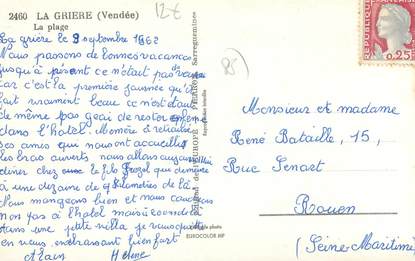 2460 LA GRIERE (Vendée)
La plage
12€
La grière le 9 septembre 1962
Nous passons de bonnes vacances
jusqu'à présent ce n'était pas
car c'est la première journée qu'il
fait vraiment beau ce n'est
de même pas gai de rester
dans l'hotel. Mémère a retrouvé
ses amis qui nous ont accueilli
les bras ouverts nous allons aujourd'hui
diner chez le fils qui demeure
à une dizaine de kilomètres de là.
Nous mangeons bien et nous
non pas à l'hotel mais
dans une petite villa je vous quitte
en vous embrassant bien fort
Alain Hélène
Reproduction interdite
EUROCOLOR MP
85
REPUBLIQUE FRANÇAISE
0,25
Monsieur et madame
René Bataille, 15,
Rue Senart
Rouen
(Seine Maritime)